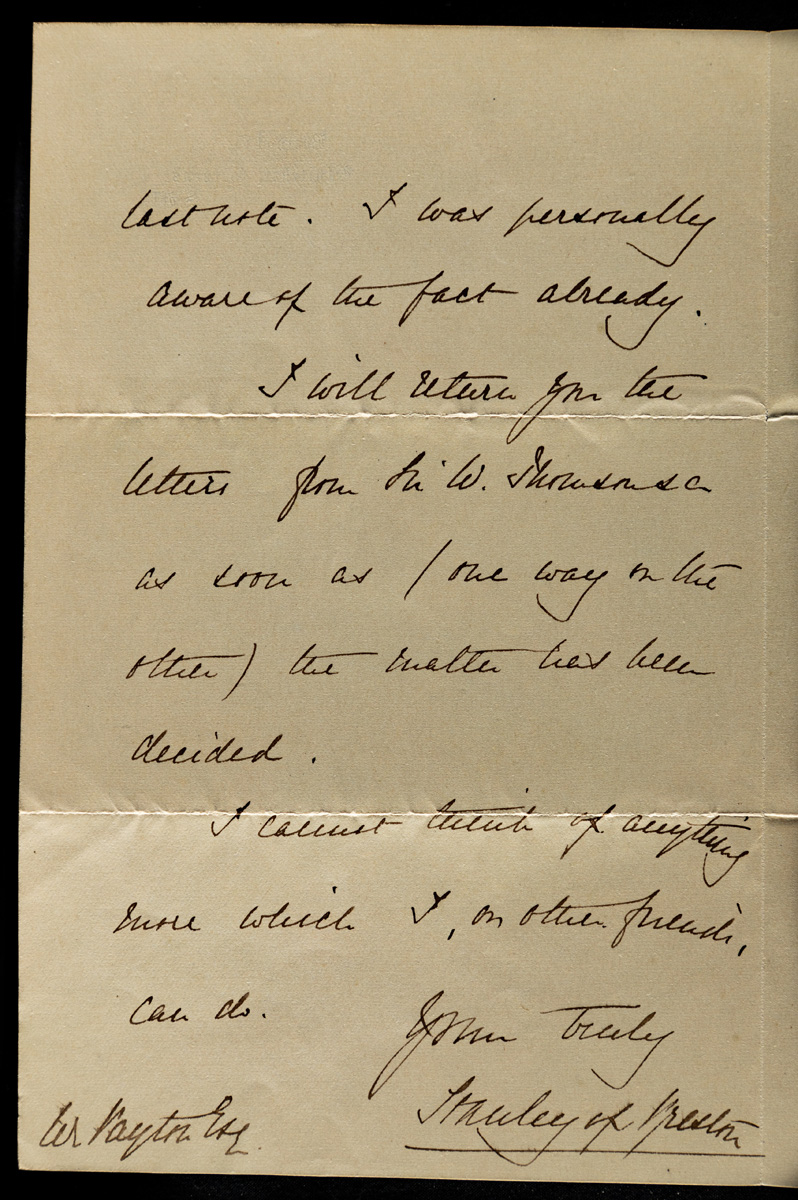 last note. I was personally
aware of the fact already.
I will return you the
letters from Sir W. Thomson &c
as soon as (one way or the
other) the matter has been
decided.
I cannot think of anything
more which I, or other friends,
can do.
Yours truly
Stanley of Preston
Esq